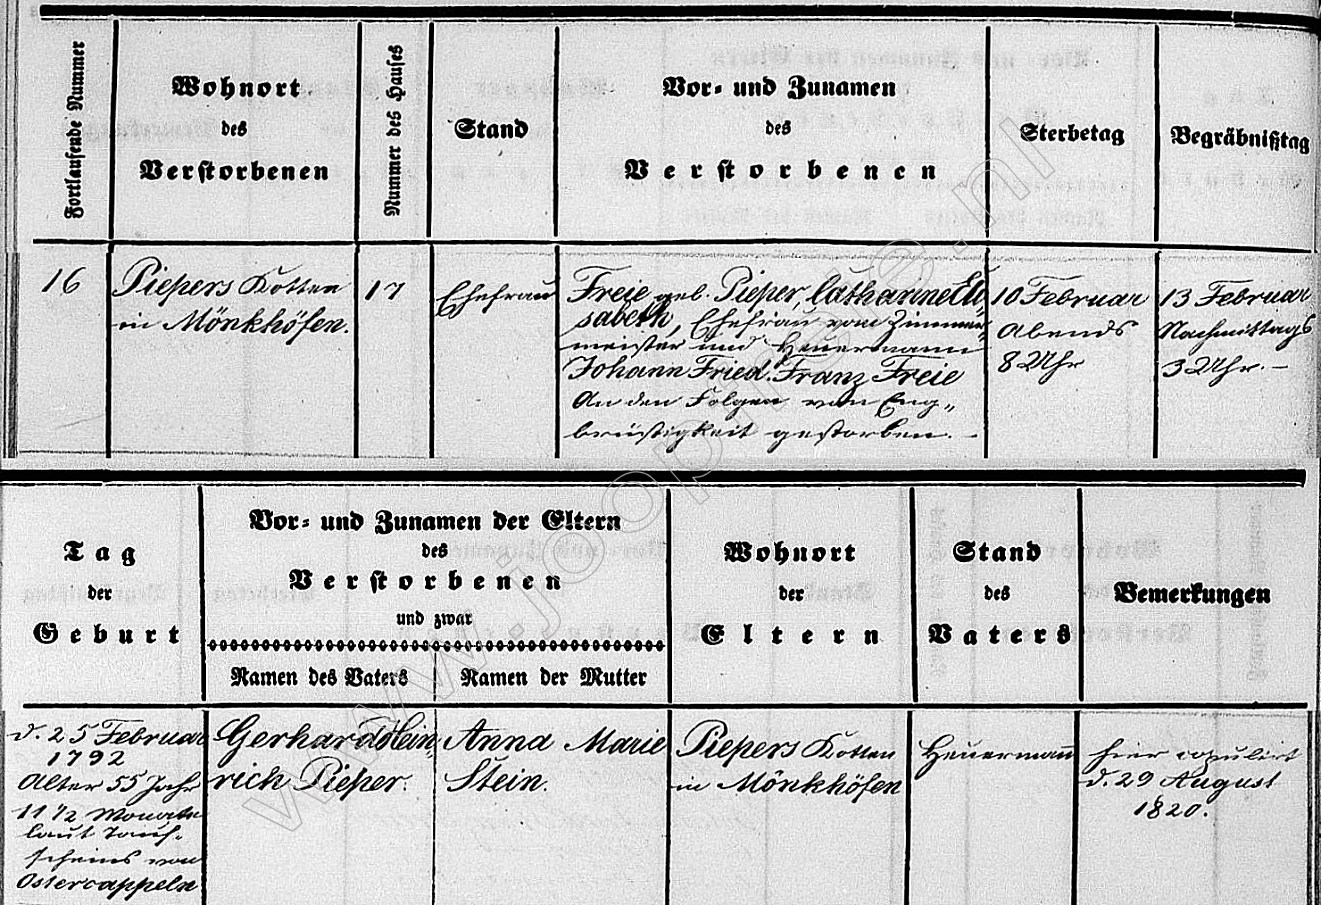 Fortlaufende Nummer
Wohnort
des
Verstorbenen
Nummer des Hauses
Stand
Vor- und Zunamen
des
Verstorbenen
Sterbetag
Begräbnißtag
16
Piepers Kotten
in Mönkhöfen.
17
Ehefrau
Freie geb. Pieper, Catharine Eli
sabeth, Ehefrau vom Zimmer
meister und Heuermann
Johann Fried. Franz Freie
An den Folgen von Eng„
brüstigkeit gestorben. -
10 Februar
Abends
8 Uhr
13 Februar
Nachmittags
3 Uhr. -
Tag
der
Geburt
Vor- und Zunamen der Eltern
des
Verstorbenen
und zwar
Namen des Vaters
Namen der Mutter
Wohnort
der
Eltern
Stand
des
Vaters
Bemerkungen
d. 25 Februar
1792
Alter 55 Jahr
11 1/2 Monate
laut Tauf-
scheins von
Ostercappeln
Gerhard Hein„
rich Pieper.
Anna Marie
Stein.
Piepers Kotten
in Mönkhöfen
Heuermann
hier copulirt
d. 29 August
1820.